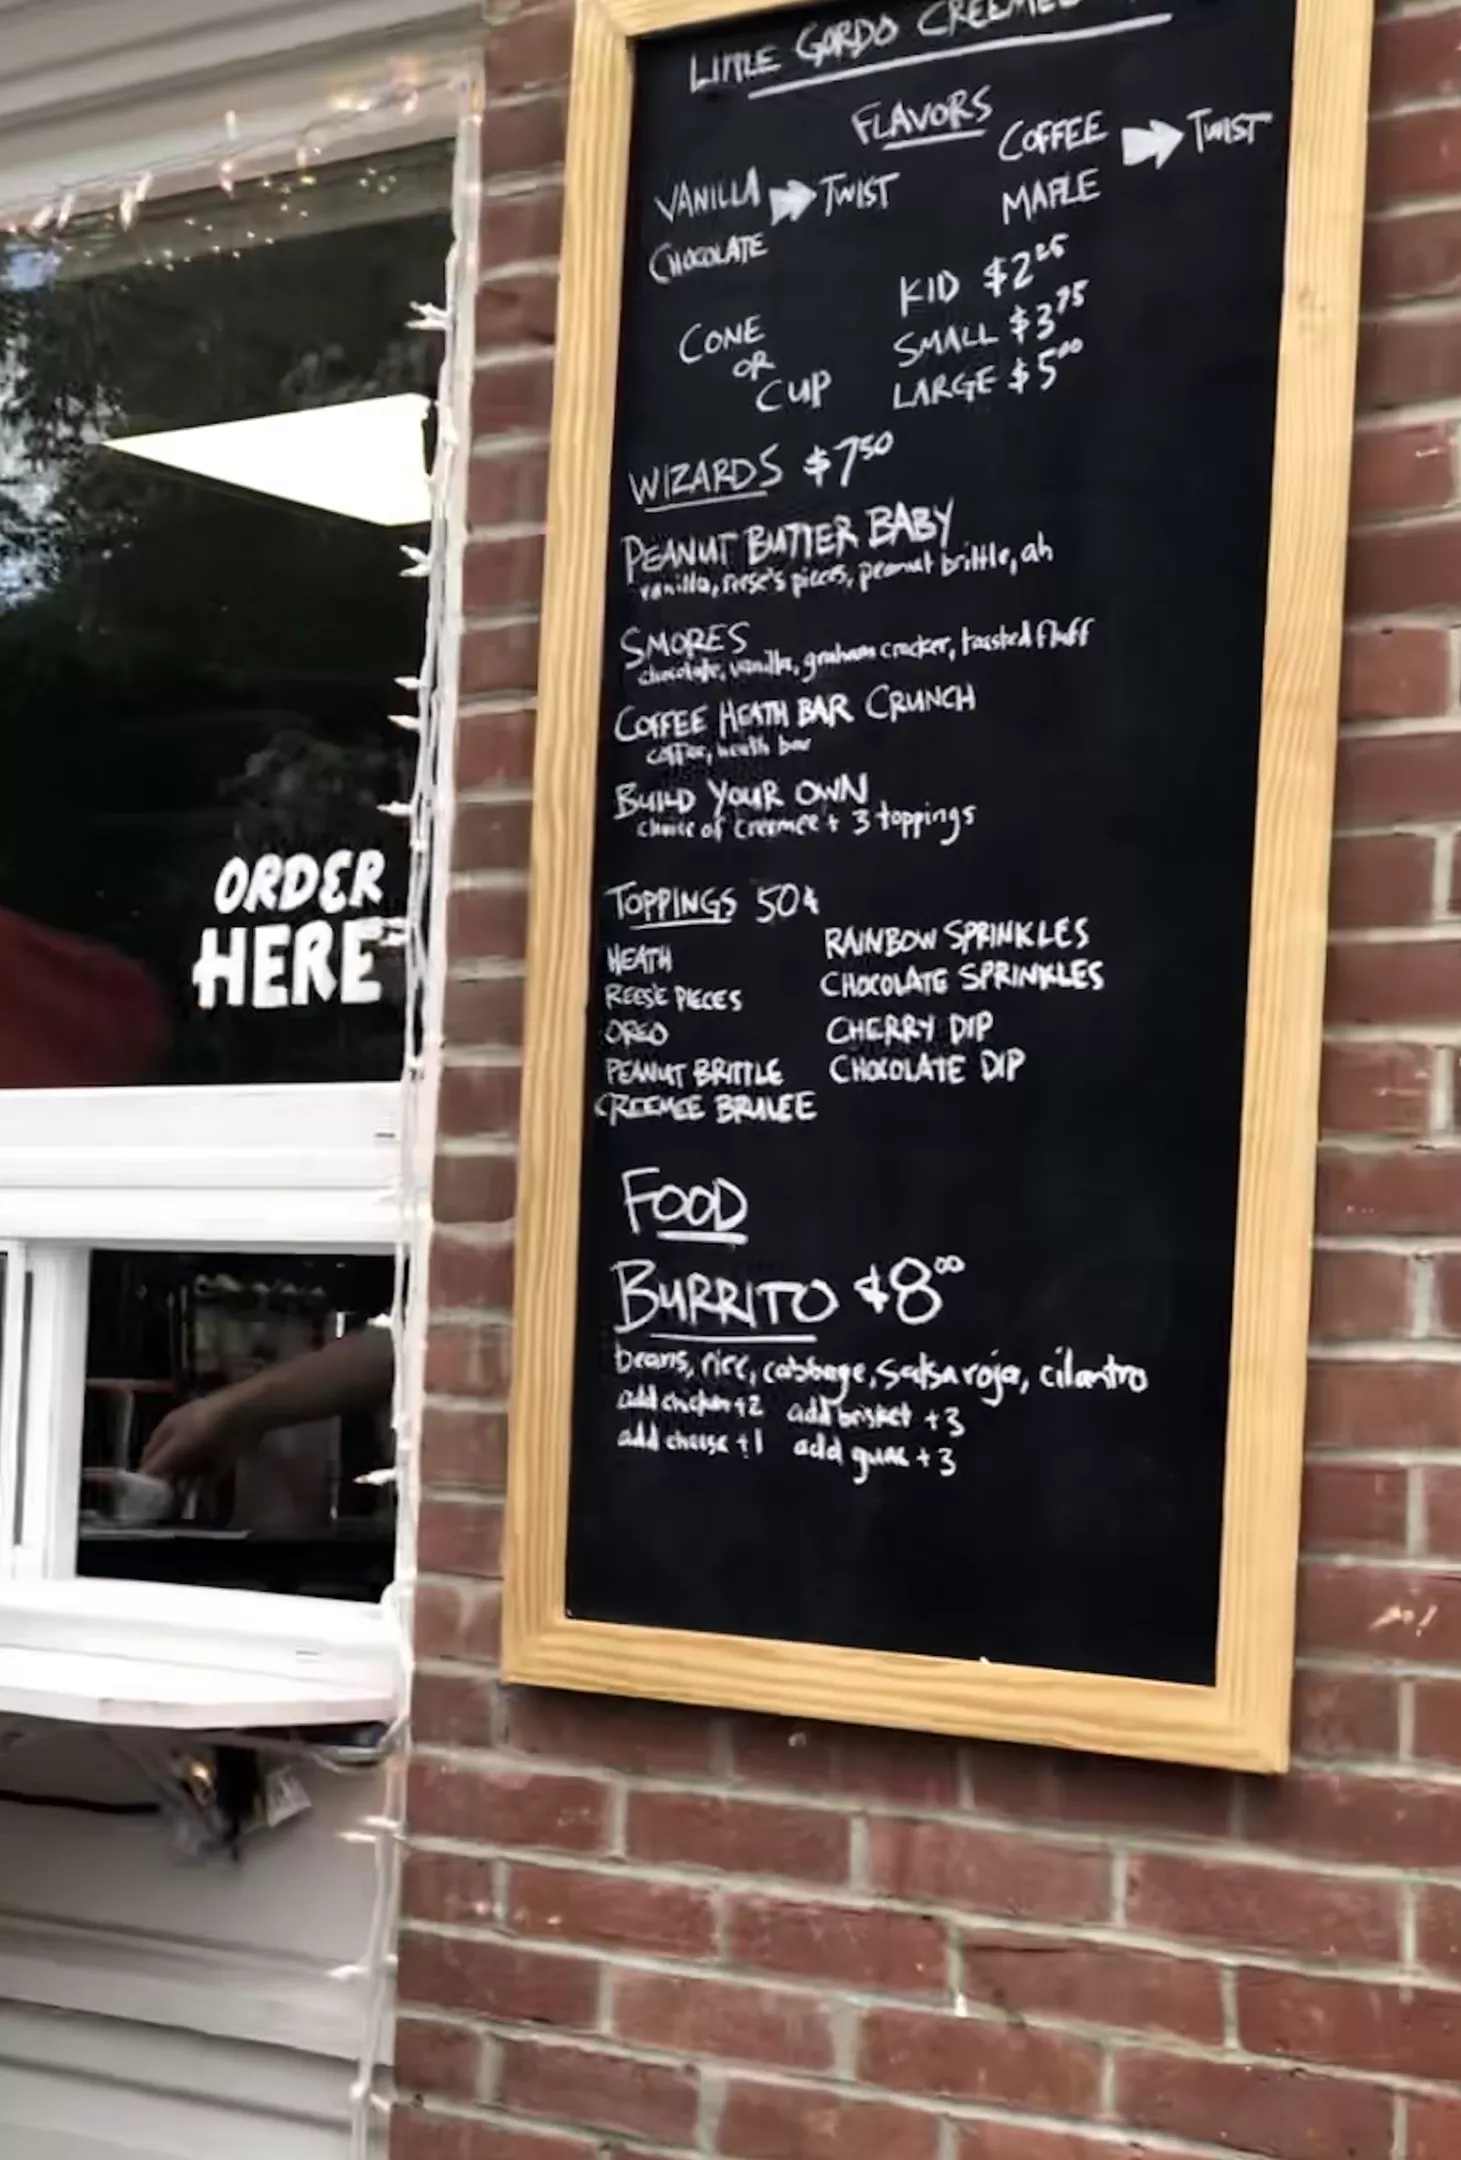 LITTLE GORDO CREEMEE
FLAVORS
VANILLA TWIST
CHOCOLATE
COFFEE TWIST
MAPLE
CONE
OR
CUP
KID $2.25
SMALL $3.75
LARGE $5.00
WIZARDS $7.50
PEANUT BUTTER BABY
vanilla, reese's pieces, peanut brittle, ah
SMORES
chocolate, vanilla, graham cracker, toasted fluff
COFFEE HEATH BAR CRUNCH
coffee, heath bar
BUILD YOUR OWN
choice of creemee + 3 toppings
TOPPINGS 50¢
HEATH
REESE PIECES
OREO
PEANUT BRITTLE
CREEMEE BRULEE
RAINBOW SPRINKLES
CHOCOLATE SPRINKLES
CHERRY DIP
CHOCOLATE DIP
FOOD
BURRITO $8.00
beans, rice, cabbage, salsa roja, cilantro
add chicken +2 add brisket +3
add cheese +1 add guac +3
ORDER
HERE